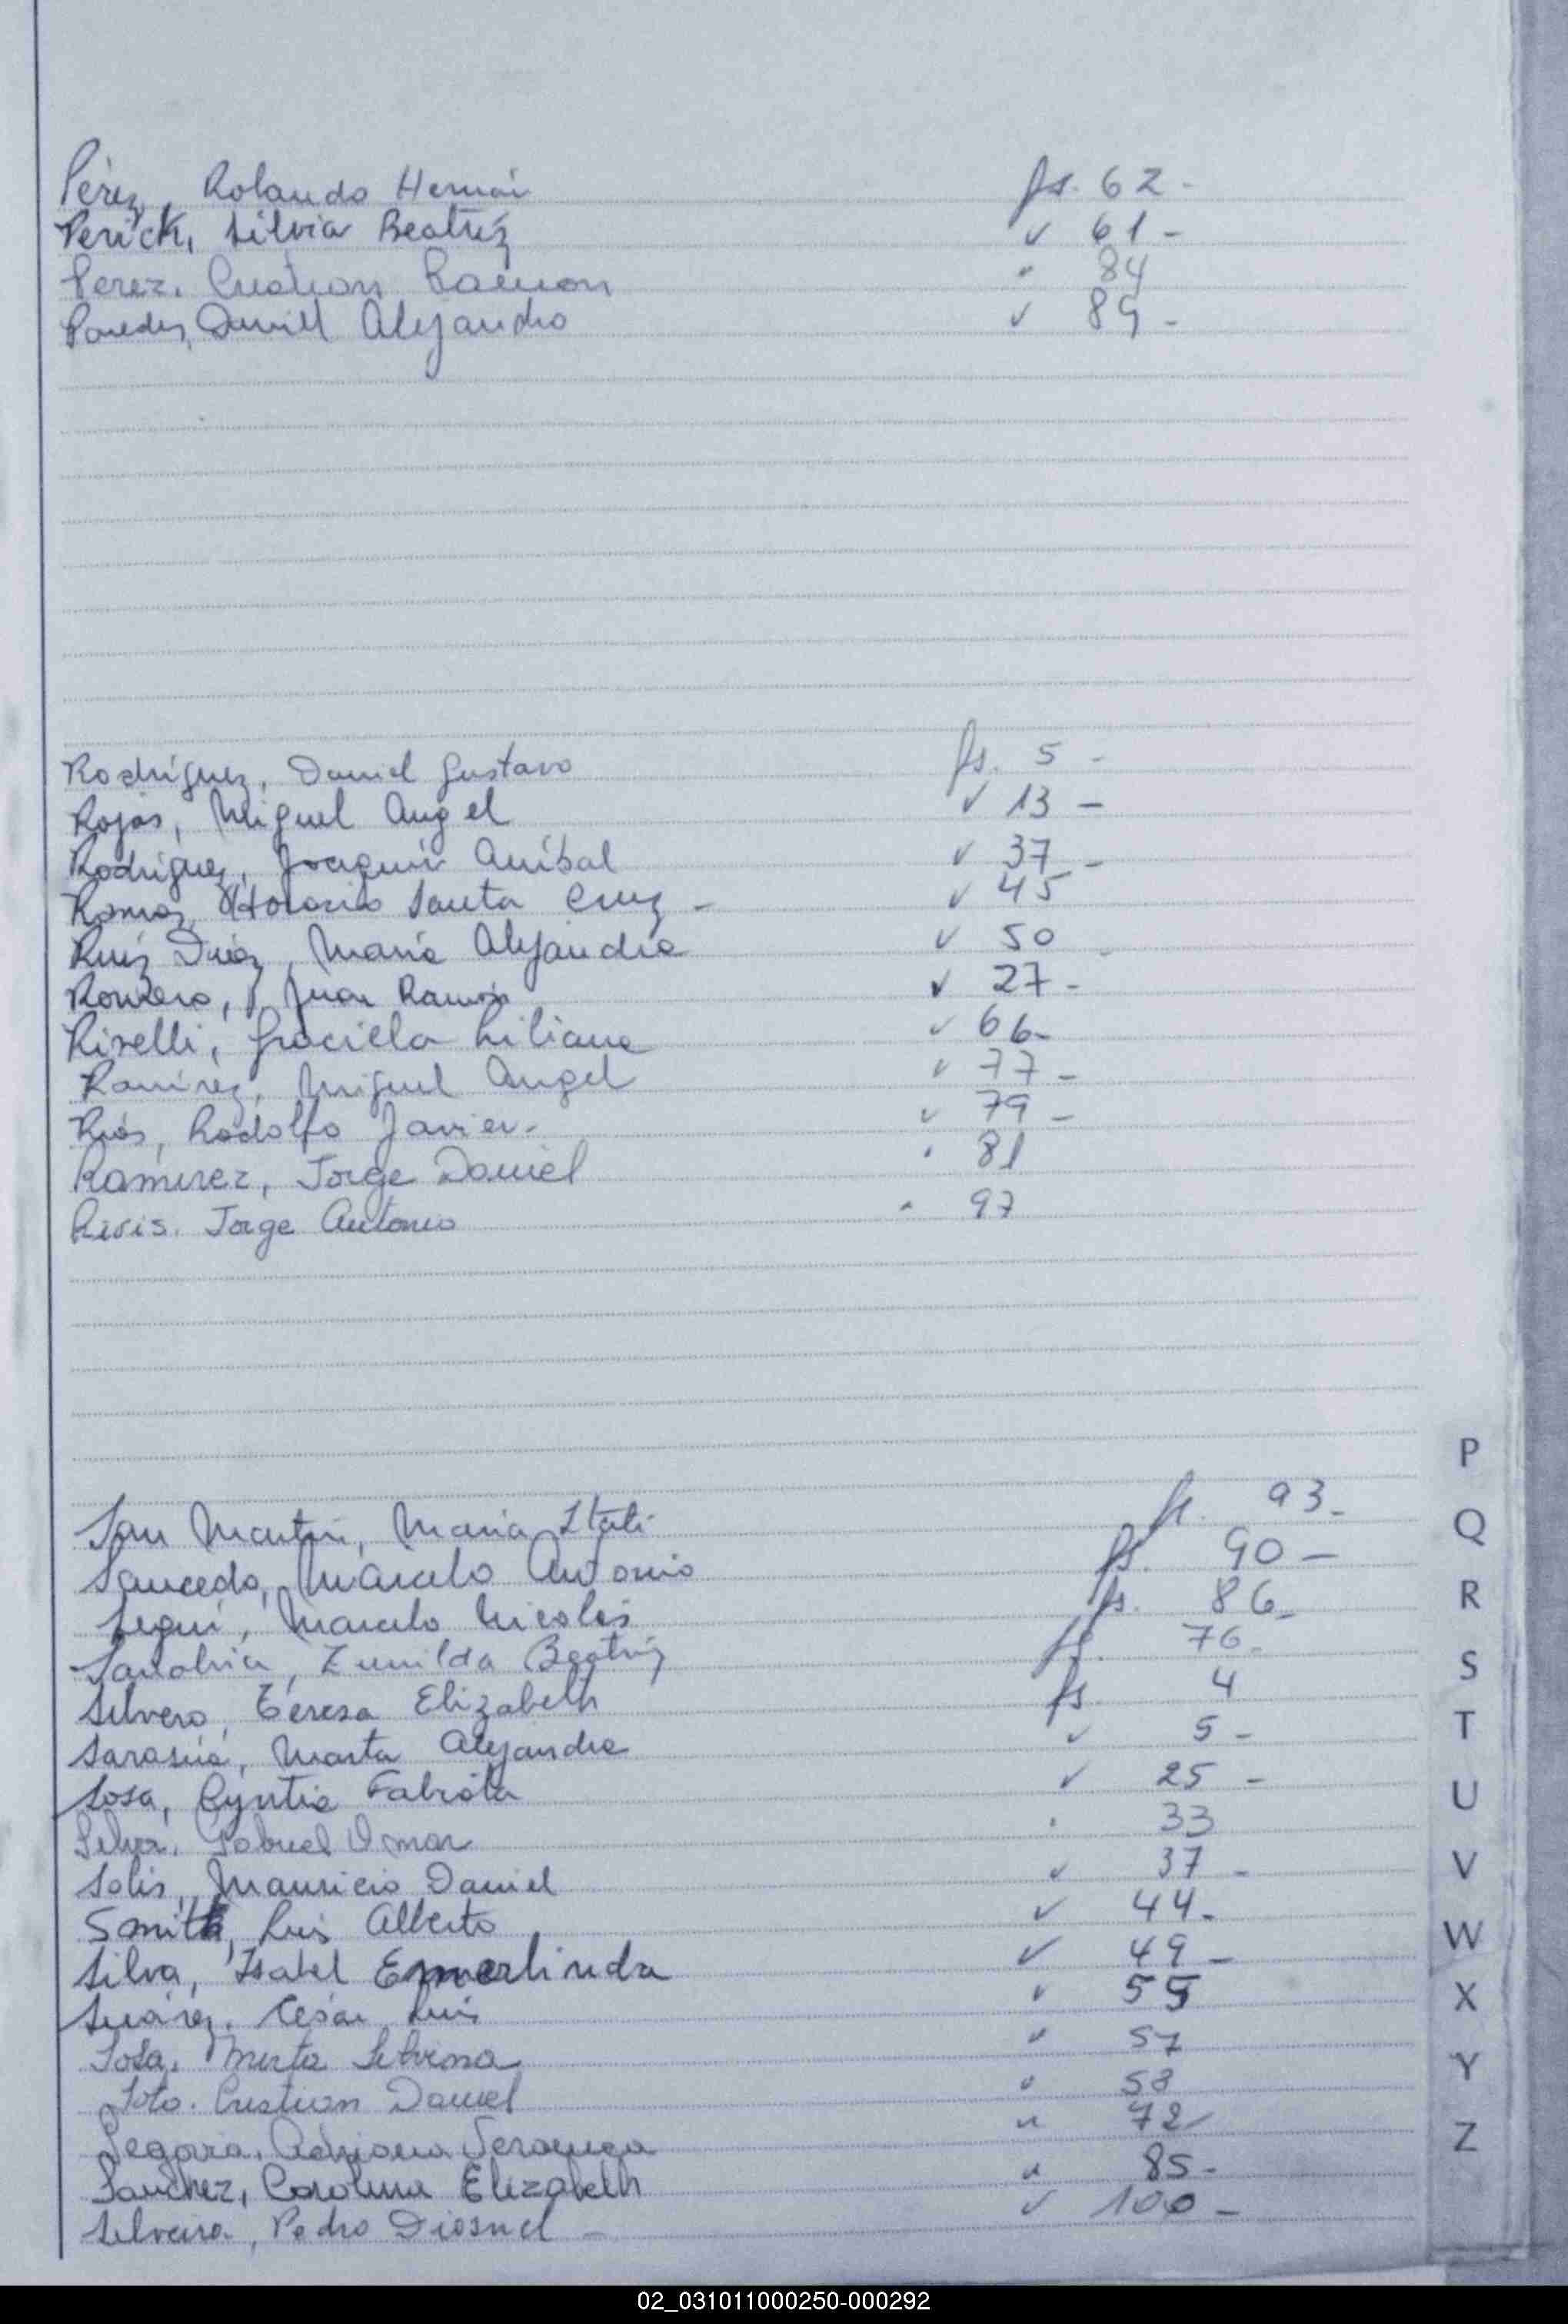 Pérez, Rolando Hernán fs. 62 -
Perick, Silvia Beatríz ✓ 61 -
Perez. Cristian Ramon " 84
Paredes, Daniel Alejandro ✓ 89 -
Rodríguez, Daniel Gustavo fs. 5 -
Rojas, Miguel Angel ✓ 13 -
Rodríguez, Joaquín Aníbal ✓ 37 -
Horacio Santa Cruz - ✓ 45
Ruíz Díaz, María Alejandra ✓ 50
Romero, Juan Ramón ✓ 27 -
Rivelli, Graciela Liliana ✓ 66 -
Ramírez, Miguel Angel ✓ 77 -
Ríos, Rodolfo Javier - ✓ 79 -
Ramirez, Jorge Daniel " 81
Jorge Antonio " 97
San Martín, María Itatí fs. 93 -
Saucedo, Marcelo Antonio fs. 90 -
Seguí, Marcelo Nicolás fs. 86 -
Sanabria, Zunilda Beatríz fs. 76 -
Silvero, Teresa Elizabeth fs. 4
Marta Alejandra ✓ 5 -
Sosa, Cyntia Fabiola ✓ 25 -
Silva. Gabriel Omar " 33
Solis, Mauricio Daniel ✓ 37 -
Smith, Luis Alberto ✓ 44 -
Silva, Isabel Emerlinda ✓ 49 -
Suárez. César Luis ✓ 55
Sosa. Mirta Silvina " 57
Soto. Cristian Daniel " 58
Segovia. Adriana Veronica " 72
Sanchez, Carolina Elizabeth " 85 -
Silveira, Pedro Diosnel - ✓ 100 -
P
Q
R
S
T
U
V
W
X
Y
Z
02_031011000250-000292